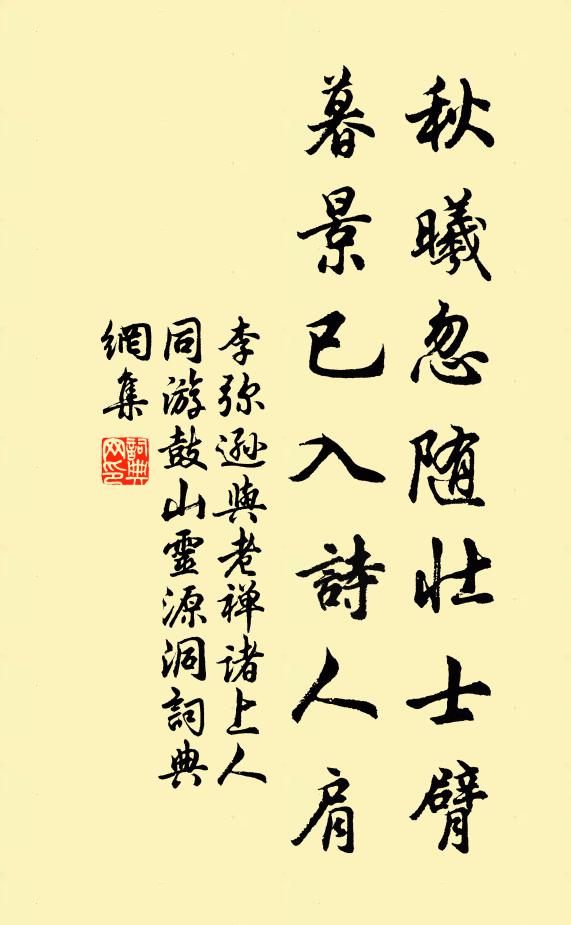 秋曦忽随壮士臂
暮景已入詩人肩
李弥遜與老禅诸上人
同游鼓山靈源洞詞典
網集
詞典
网印